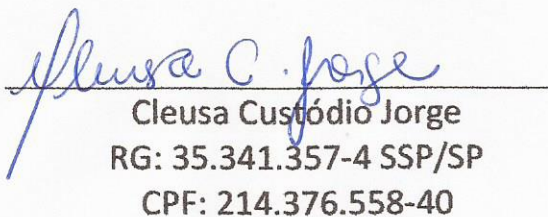 Cleusa C. Jorge
Cleusa Custódio Jorge
RG: 35.341.357-4 SSP/SP
CPF: 214.376.558-40